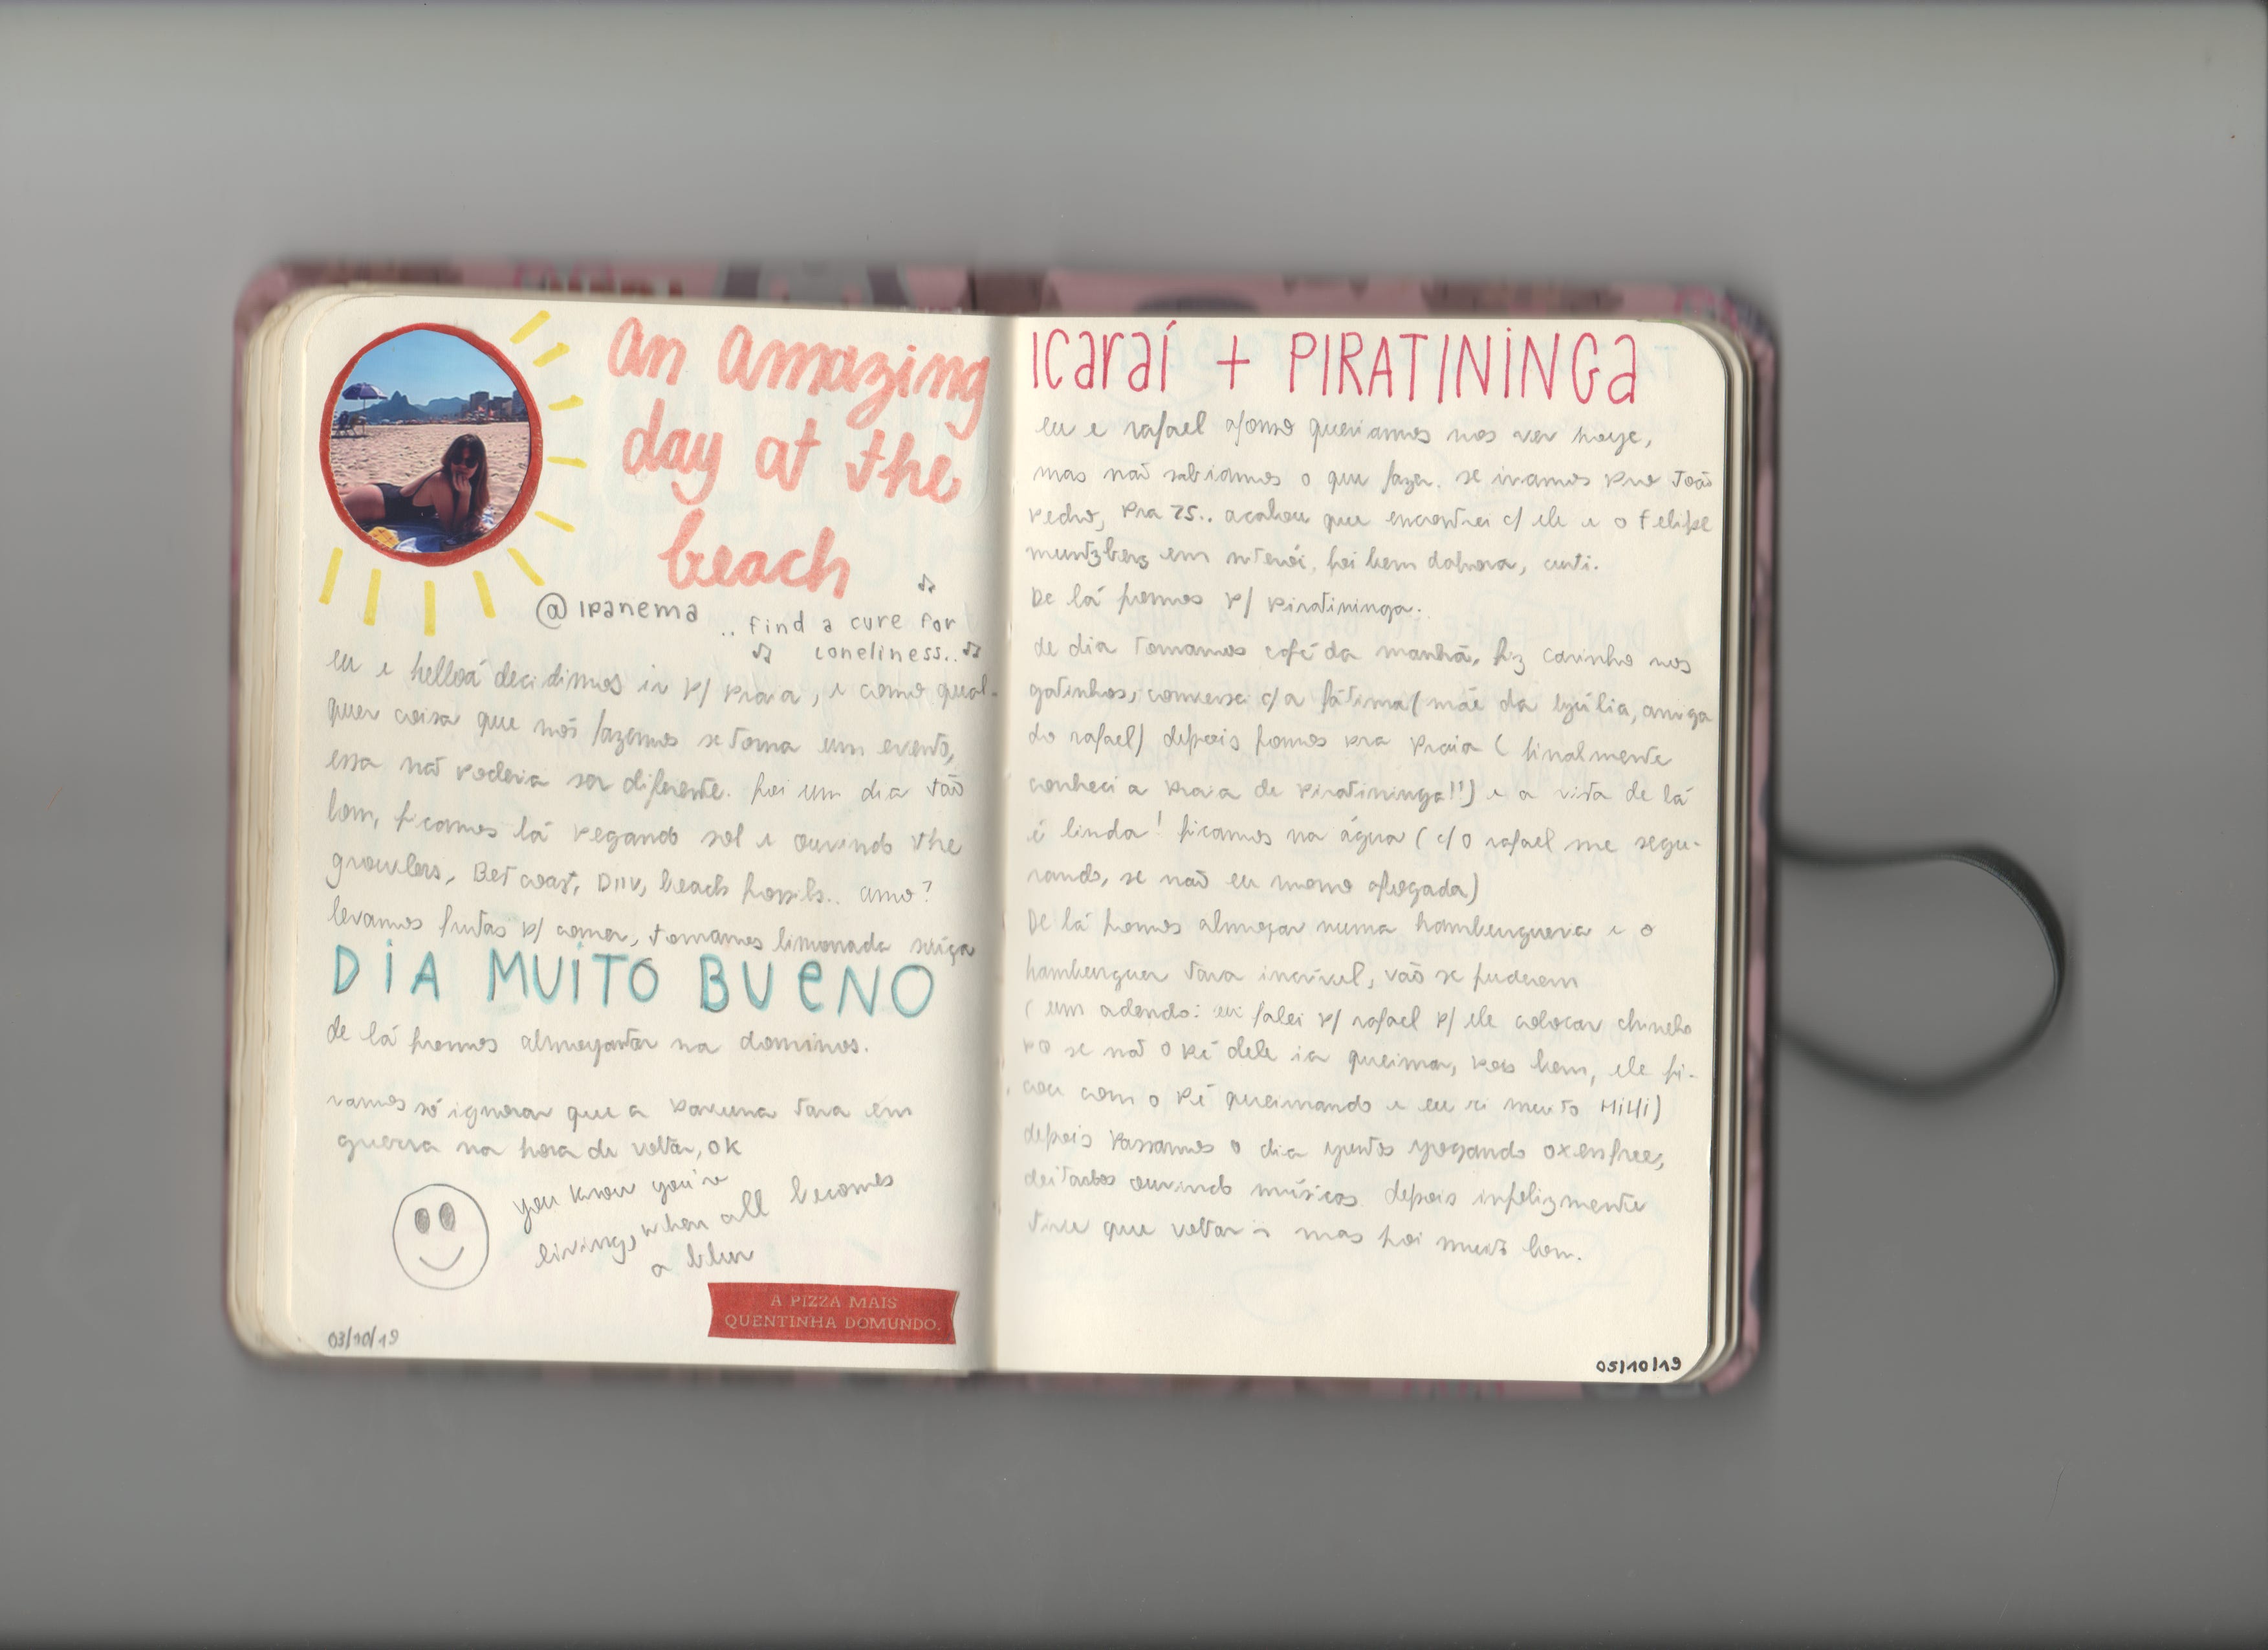 an amazing
day at the
beach
@ipanema
.. find a cure for
loneliness..
eu e helloá decidimos ir p/ praia, e como qual-
quer coisa que nós fazemos se torna um evento,
essa não poderia ser diferente. foi um dia tão
bom, ficamos lá pegando sol e ouvindo the
growlers, Bet coast, DIIV, beach fossils.. amo?
levamos frutas p/ comer, tomamos limonada suíça
DiA MUiTO BUeNO
de lá fomos almojantar na dominos.
vamos só ignorar que a pavuna tava em
guerra na hora de voltar, OK
you know you're
living, when all becomes
a blur
A PIZZA MAIS
QUENTINHA DOMUNDO.
03/10/19
Icaraí + PIRATININGa
eu e rafael afonso queriamos nos ver hoje,
mas não sabiamos o que fazer. se iramos pro João
pedro, pra 25.. acabou que encontrei c/ ele e o felipe
muntzberg em niterói, foi bem dahora, curti.
De lá fomos p/ piratininga.
de dia tomamos café da manhã, fiz carinho nos
gatinhos, conversei c/ a fátima (mãe da byúlia, amiga
do rafael) depois fomos pra praia (finalmente
conheci a praia de piratininga!!) e a vista de lá
é linda! ficamos na água (c/ o rafael me segu-
rando, se não eu morro afogada)
De lá fomos almoçar numa hamburgueria e o
hamburguer tava incrível, vão se puderem
(um adendo: eu falei p/ rafael p/ ele colocar chinelo
po se não o pé dele ia queimar, pois bem, ele fi-
cou com o pé queimando e eu ri muito HiHi)
depois passamos o dia juntos jogando oxenfree,
deitados ouvindo músicas depois infelizmente
tive que voltar mas foi muito bom.
05/10/19